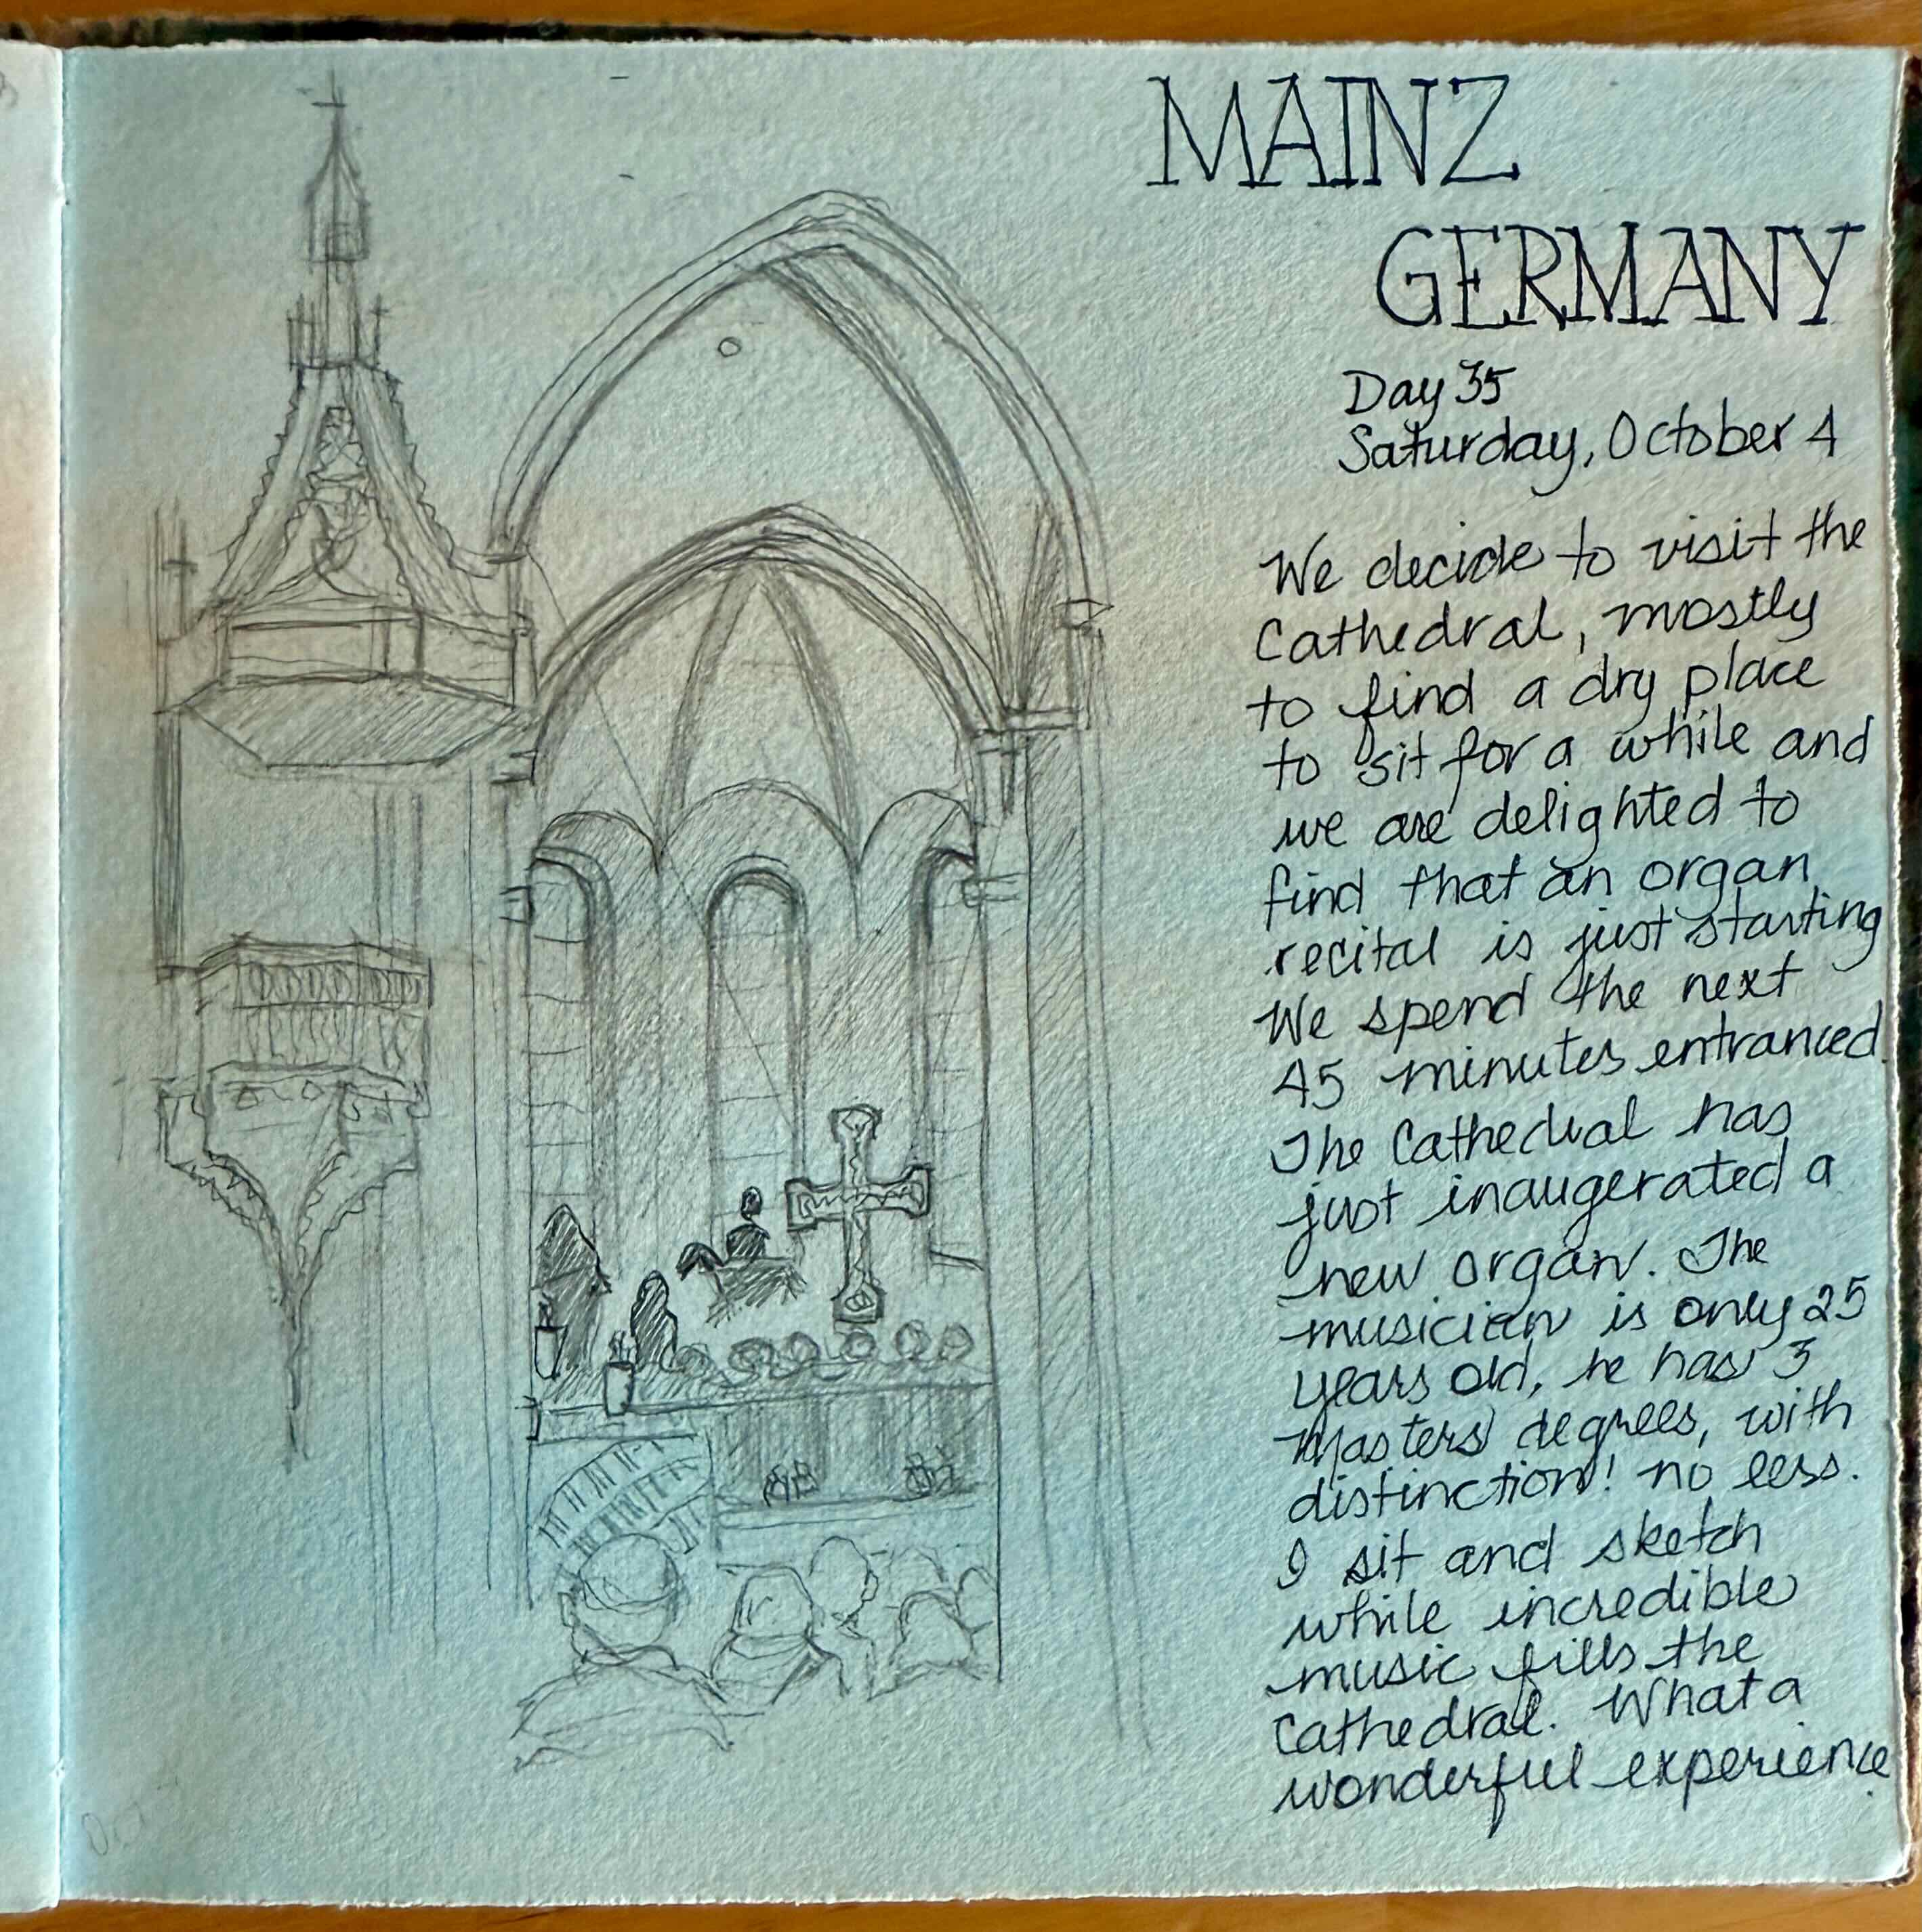 MAINZ
GERMANY
Day 35
Saturday, October 4
We decide to visit the
Cathedral, mostly
to find a dry place
to sit for a while and
we are delighted to
find that an organ
recital is just starting
We spend the next
45 minutes entranced.
The Cathedral has
just inaugerated a
new organ. The
musician is only 25
years old, he has 3
Masters degrees, with
distinction! no less.
I sit and sketch
while incredible
music fills the
Cathedral. What a
wonderful experience.